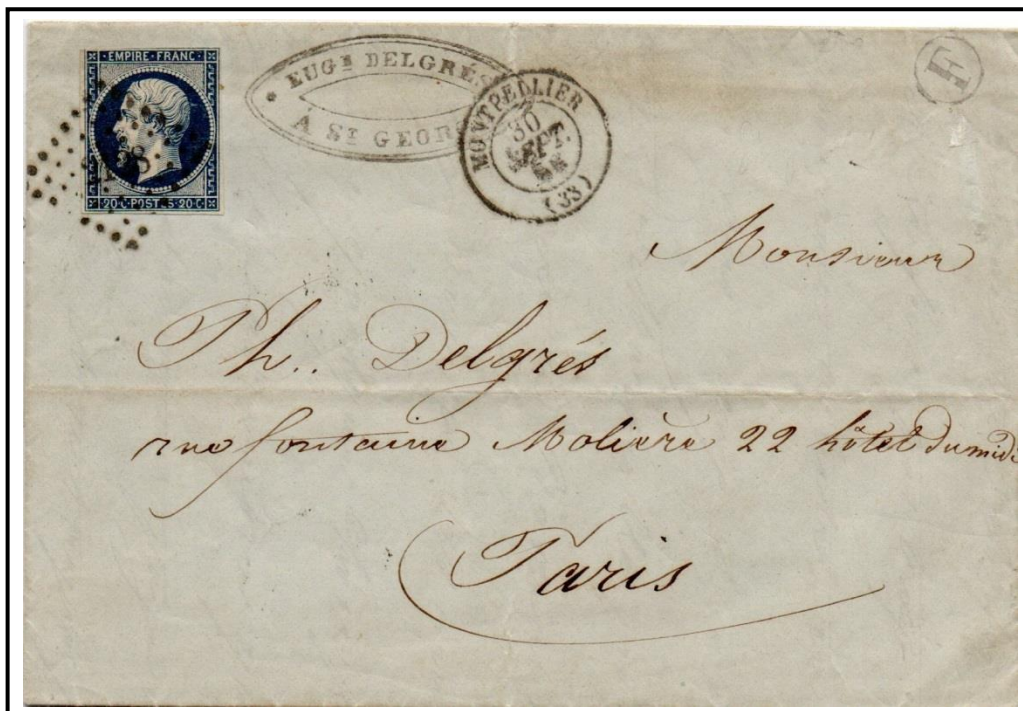 EMPIRE·FRANC·
20·C·POSTES·20·C·
EUGE DELGRÉS
A ST GEOR
MONTPELLIER
30
SEPT.
(33)
F
Monsieur
Ph.. Delgrés
rue fontaine Molière 22 hôtel du midi
Paris